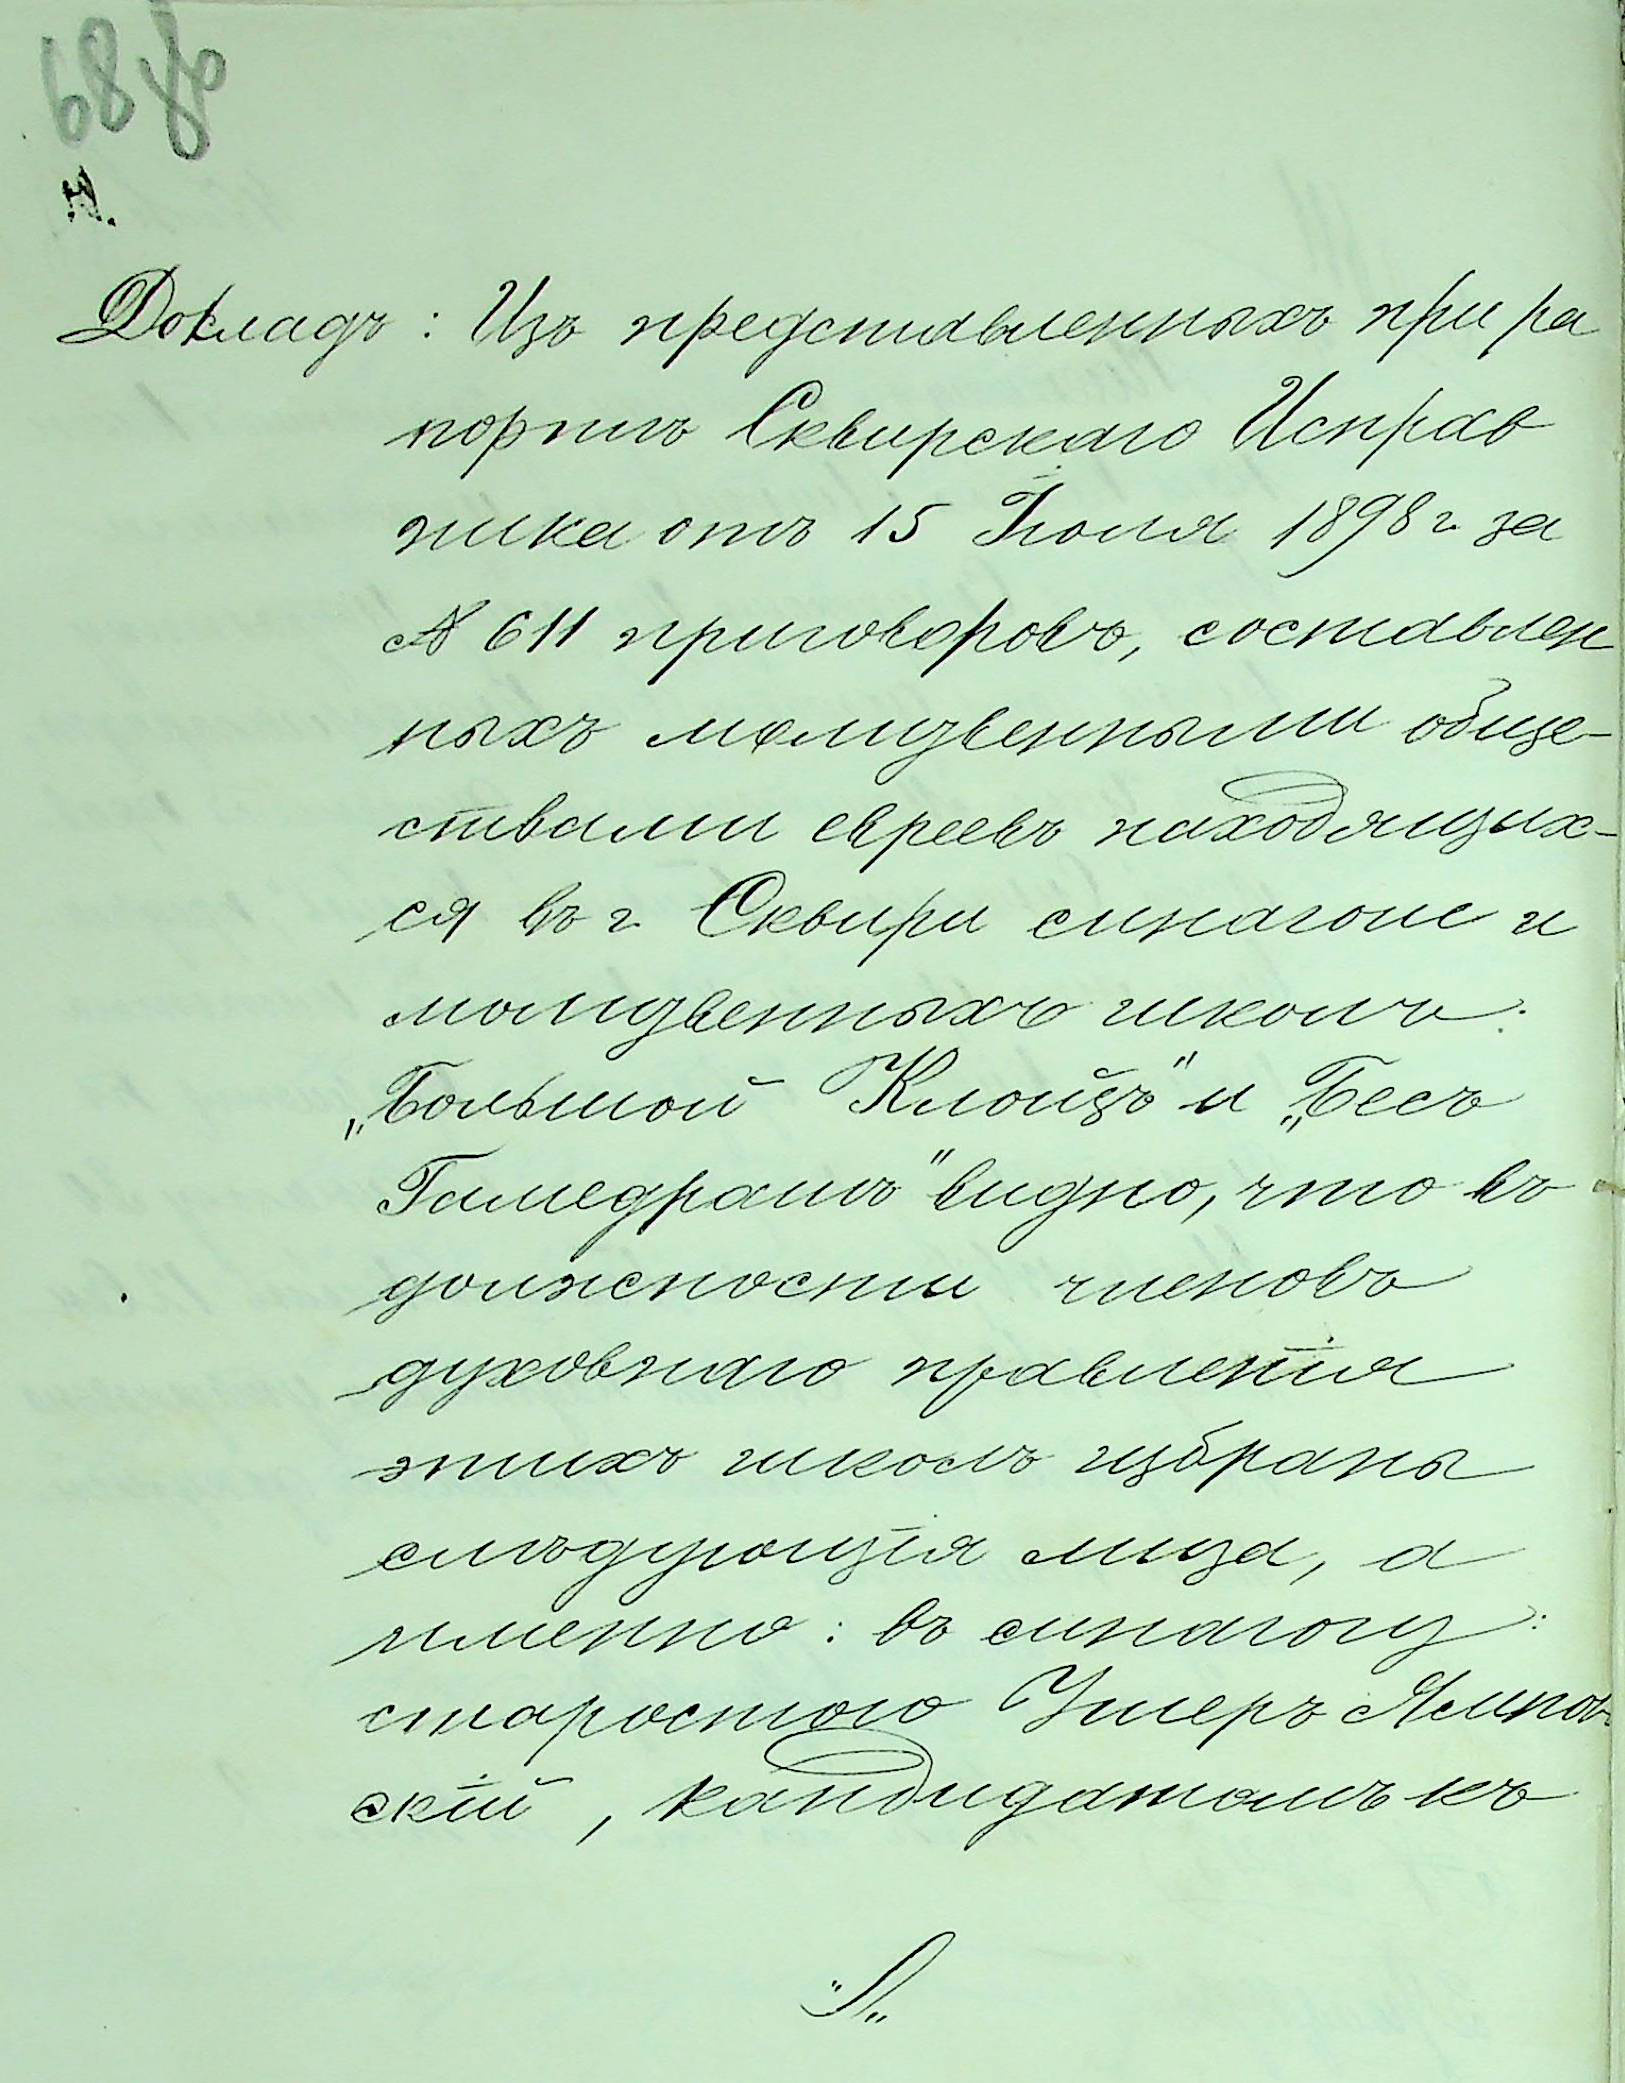 68
Докладъ: Изъ представленныхъ при ра
портѣ Сквирскаго Исправ
ника отъ 15 Іюля 1898 г. за
№ 611 приговоровъ, составлен
ныхъ молитвенными обще-
ствами евреевъ находящих-
ся въ г. Сквири синагоге и
молитвенныхъ школъ:
„Большой Клойзъ" и „Бесъ
Гамедрашъ" видно, что въ
должности членовъ
духовнаго правленія
этихъ школъ избраны
слѣдующія лица, а
именно: въ синагогу:
старостою Ушеръ Ямпов
скій, кандидатомъ къ